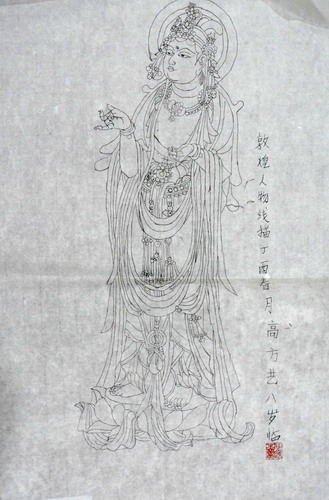 敦煌人物线描丁酉春月高方艺八岁临